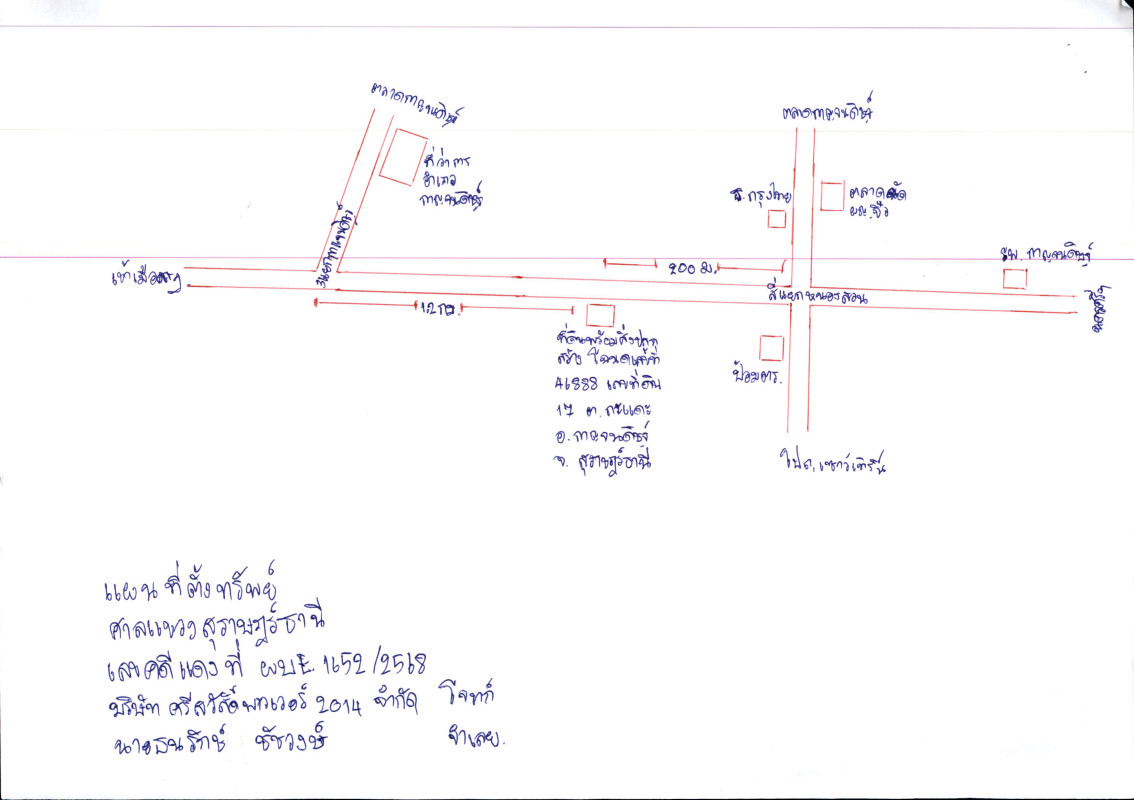 ตลาดกาญจนดิษฐ์
ที่ว่าการ
อำเภอ
กาญจนดิษฐ์
สามแยกกาญจนดิษฐ์
เข้าเมืองสฎ
12 กม.
ตลาดกาญจนดิษฐ์
ธ.กรุงไทย
ตลาดนัด
200 ม.
สี่แยกหนองสวน
รพ. กาญจนดิษฐ์
ที่ดินพร้อมสิ่งปลูก
สร้าง โฉนดเลขที่
46888 เลขที่ดิน
17 ต. กะแดะ
อ. กาญจนดิษฐ์
จ. สุราษฎร์ธานี
ป้อมตร.
ไปถ.เซาว์เทิร์น
แผนที่ตั้งทรัพย์
ศาลแขวงสุราษฎร์ธานี
เลขคดีแดงที่ ผบE. 1652/2568
บริษัท ศรีสวัสดิ์พาวเวอร์ 2014 จำกัด โจทก์
นายธนรักษ์ ชัชวงษ์ จำเลย.